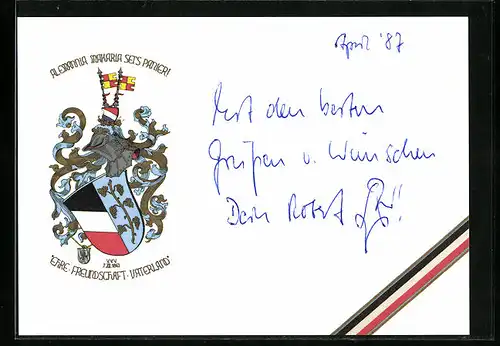 ALEMANNIA MAKARIA SEI'S PANIER!
April '87
Mit den besten
Grüßen u. Wünschen
Dein Robert
EHRE · FREUNDSCHAFT · VATERLAND